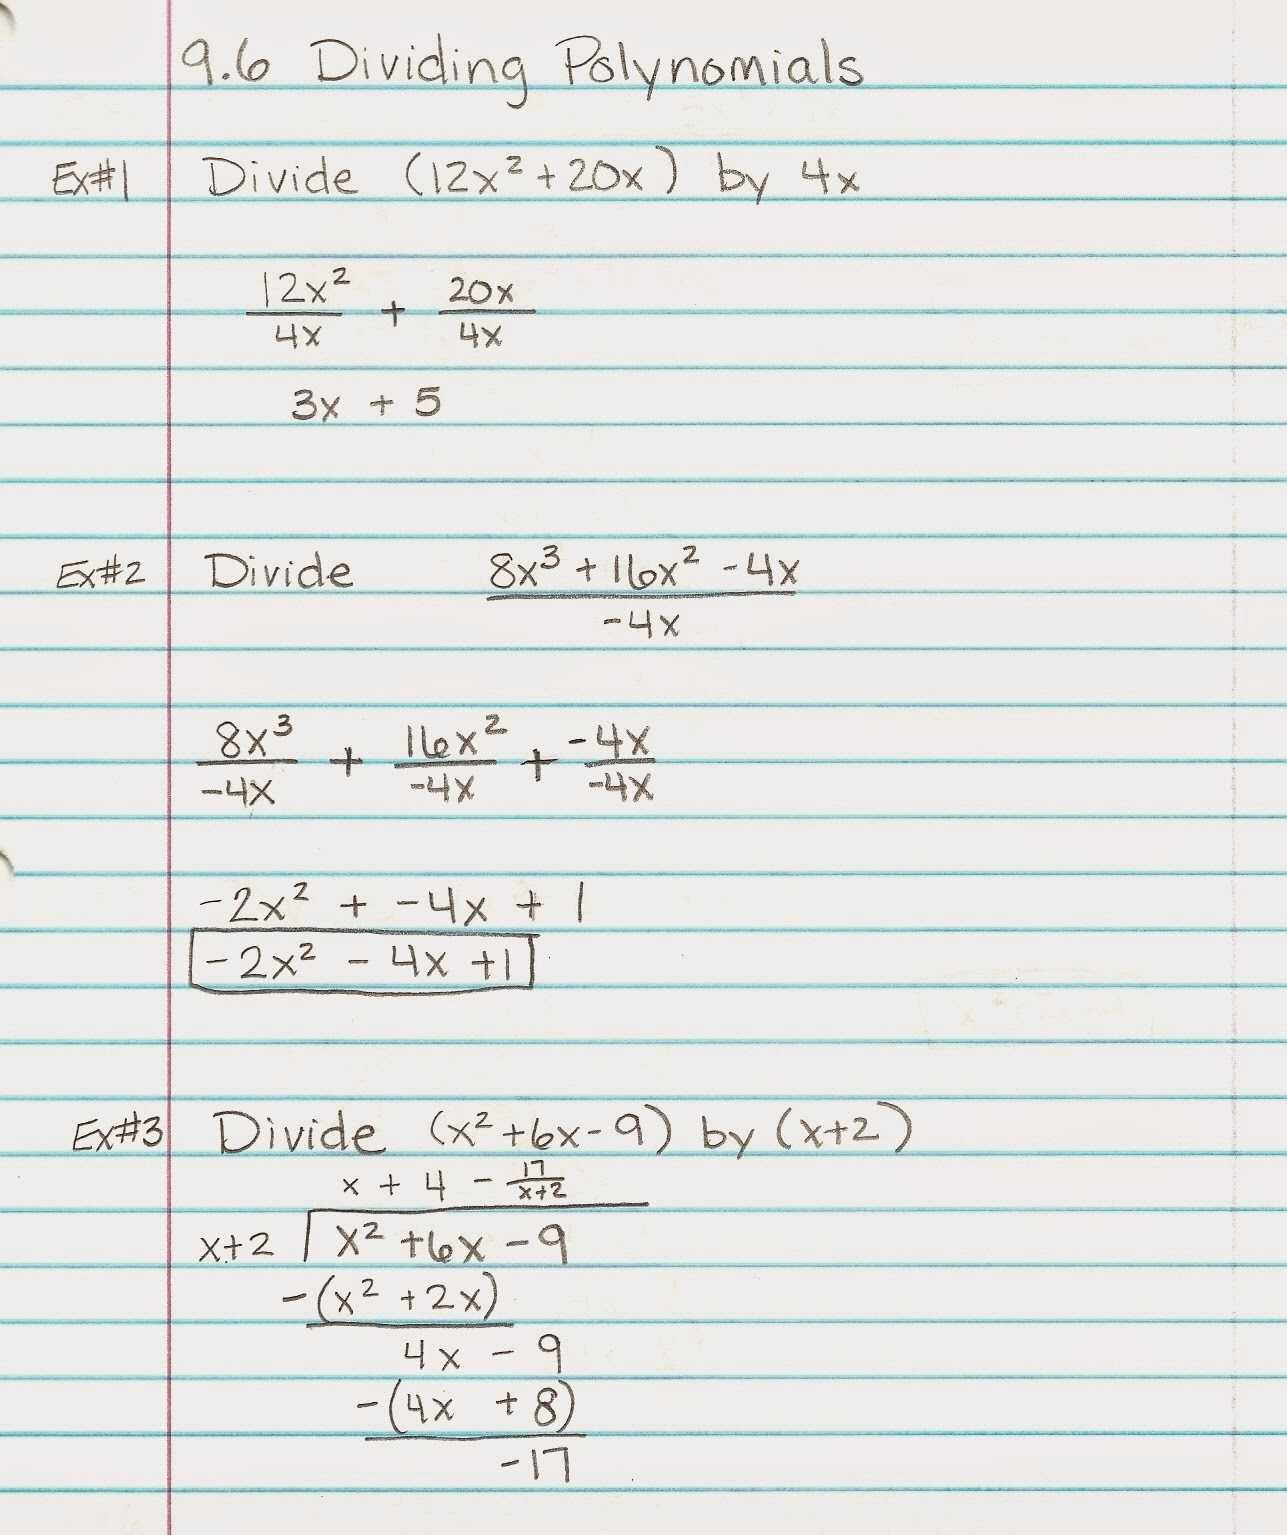 9.6 Dividing Polynomials
Ex#1 Divide (12x² + 20x) by 4x
12x²/4x + 20x/4x
3x + 5
Ex#2 Divide (8x³ + 16x² - 4x)/-4x
8x³/-4x + 16x²/-4x + -4x/-4x
-2x² + -4x + 1
-2x² - 4x +1
Ex#3 Divide (x² + 6x - 9) by (x+2)
x + 4 - 17/(x+2)
x+2 x² +6x - 9
-(x² + 2x)
4x - 9
-(4x + 8)
-17